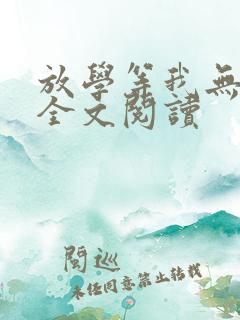 放學等我無
全文閱讀
閱巡
未经同意禁止转载